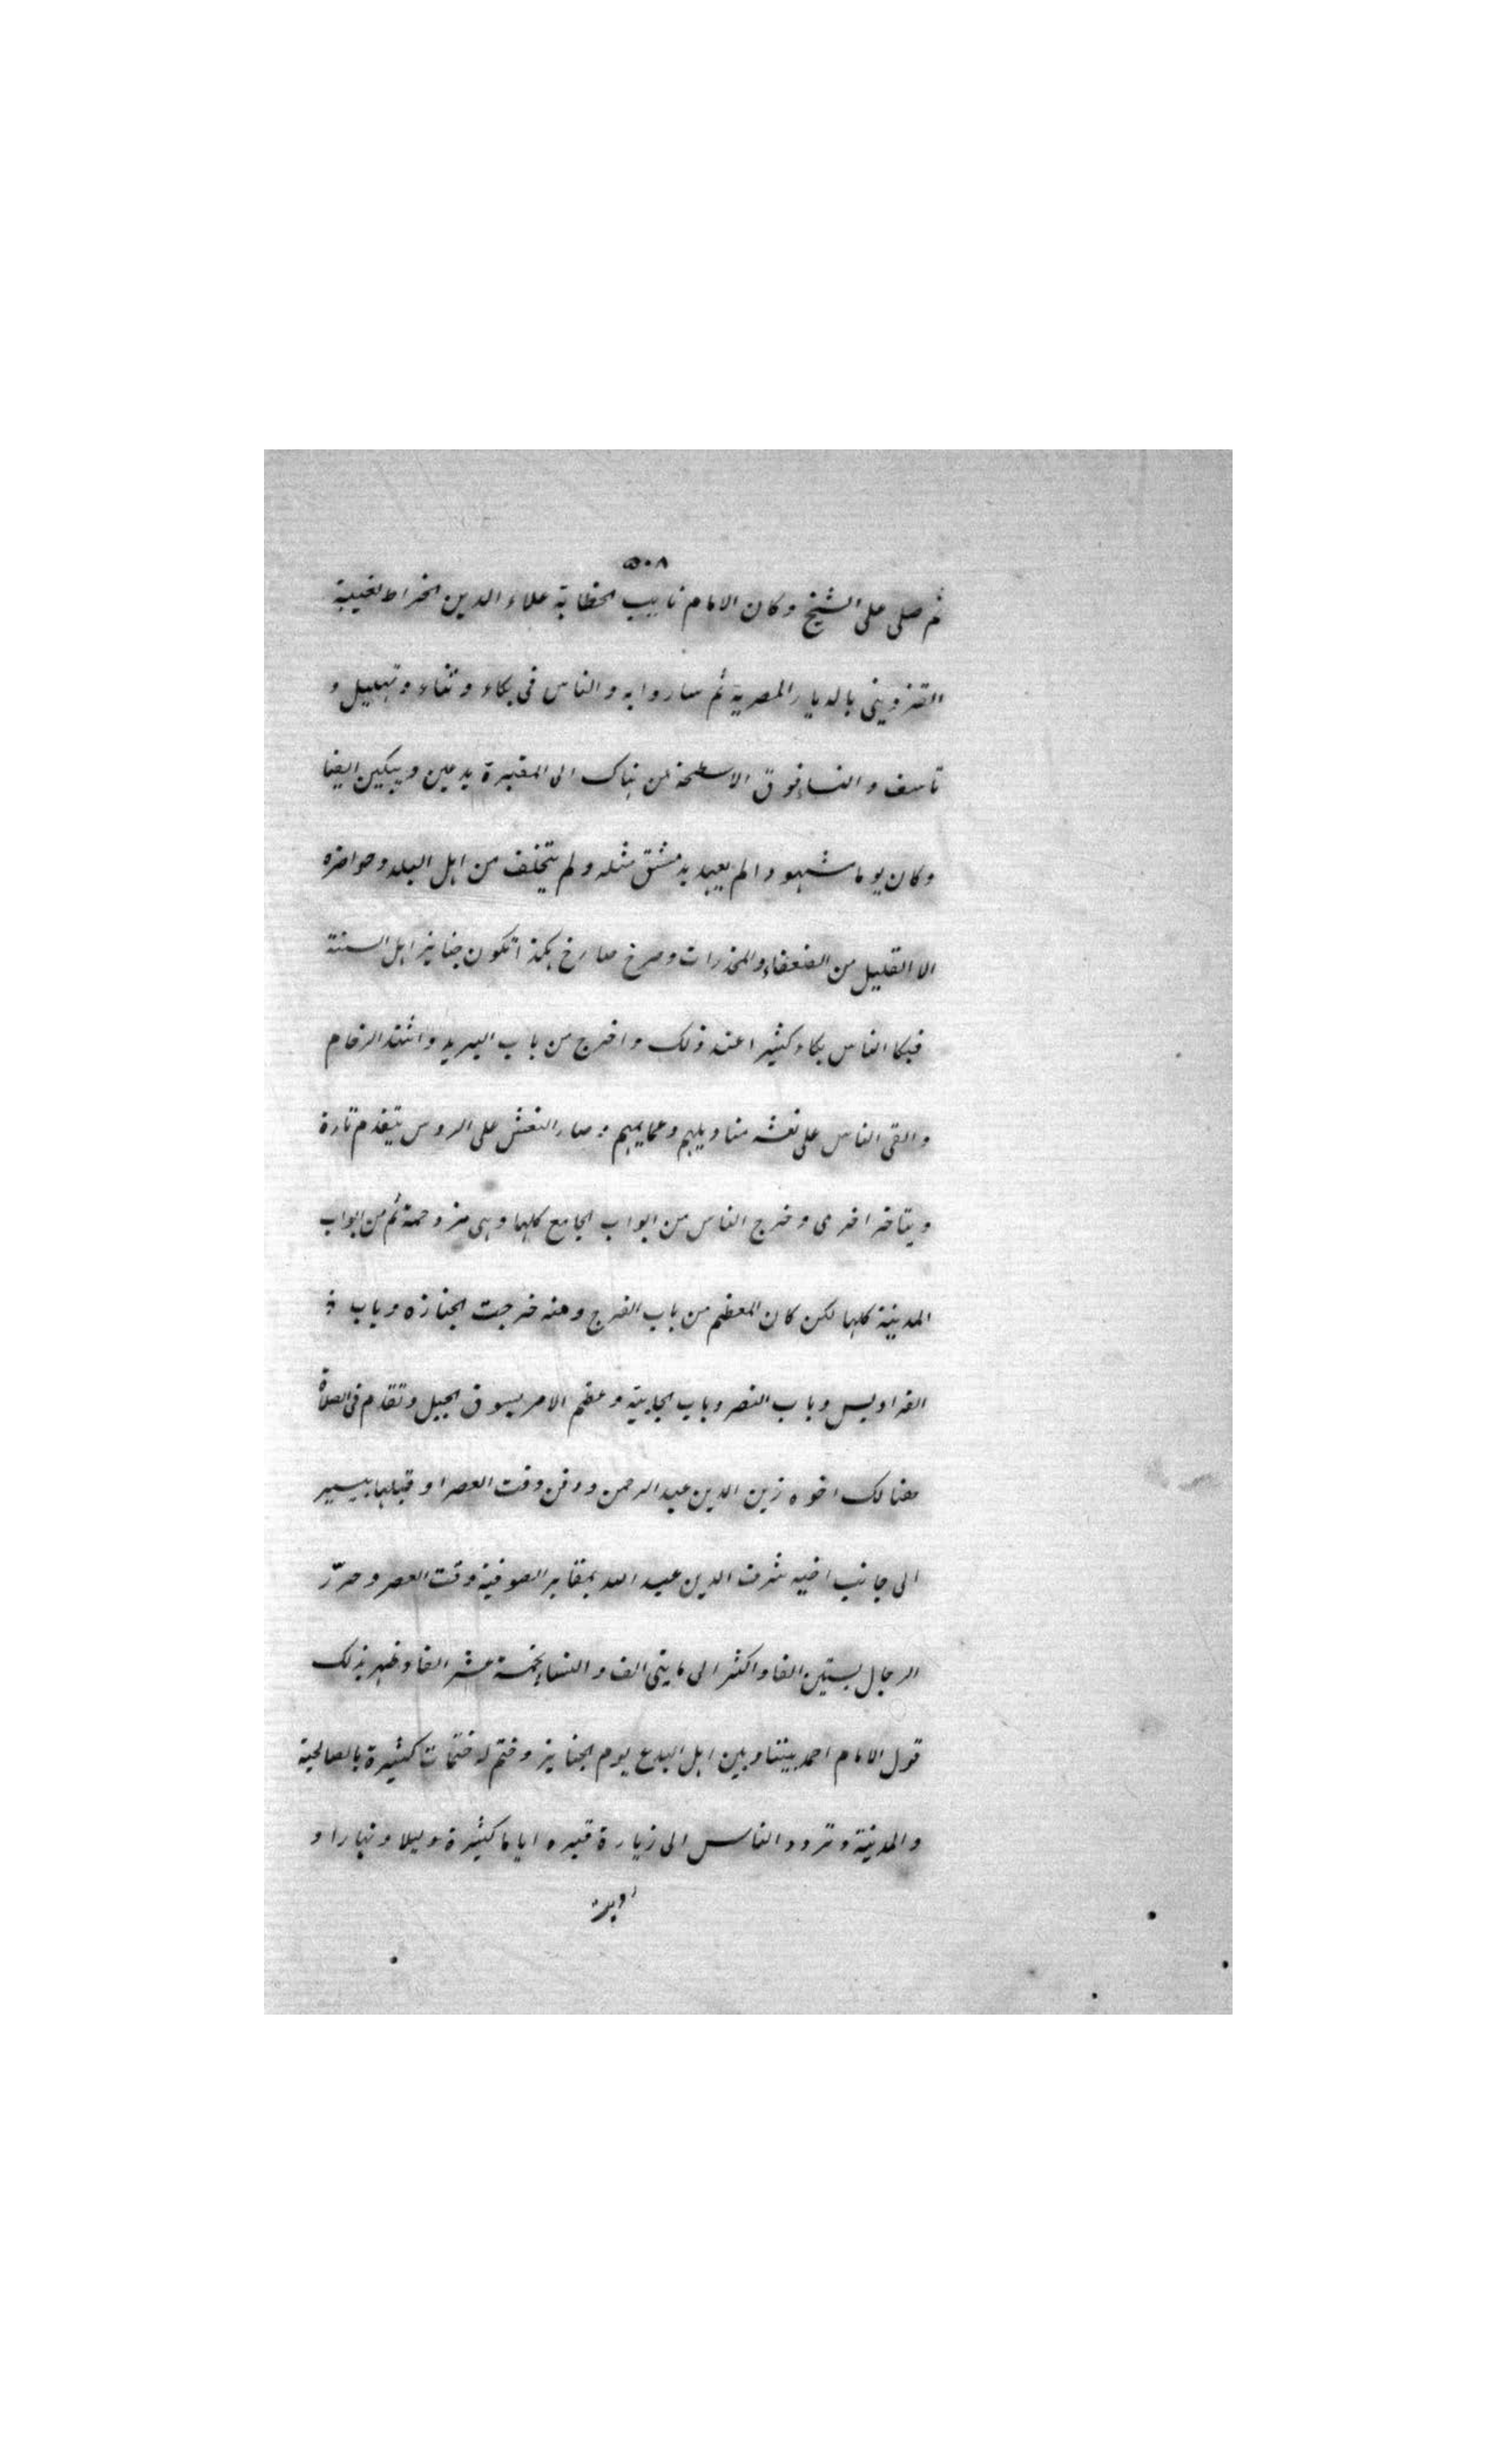 ٥٠٨
ثم صلى على الشيخ وكان الامام نايب الخطابة علاء الدين الخراط لغيبة
القزويني بالديار المصرية ثم ساروا به والناس في بكاء وثناء وتهليل و
تاسف والنساء فوق الاسطحة من هناك الى المقبرة يدعين ويبكين ايضا
وكان يوما مشهودا لم يعهد بدمشق مثله ولم يتخلف من اهل البلد وحواضره
الا القليل من الضعفاء والمخدرات وصرخ صارخ هكذا تكون جنايز اهل السنة
فبكا الناس بكاء كثيرا عند ذلك واخرج من باب البريد واشتد الزحام
والقى الناس على نعشه مناديلهم وعمايمهم وصار النعش على الروس يتقدم تارة
ويتاخر اخرى وخرج الناس من ابواب الجامع كلها وهي مزدحمة ثم من ابواب
المدينة كلها لكن كان المعظم من باب الفرج ومنه خرجت الجنازه وباب
الفراديس وباب النصر وباب الجابية وعظم الامر بسوق الجبل وتقدم في الصلاة
هنالك اخوه زين الدين عبد الرحمن ودفن وقت العصر او قبلها بيسير
الى جانب اخيه شرف الدين عبد الله بمقابر الصوفية وقت العصر وحرّز
الرجال بستين الفا واكثر الى مايتي الف والنساء بخمسة عشر الفا وظهر بذلك
قول الامام احمد بيننا وبين اهل البدع يوم الجنايز وختم له ختمات كثيرة بالصالحية
والمدينة وتردد الناس الى زيارة قبره اياما كثيرة وليلا ونهارا و